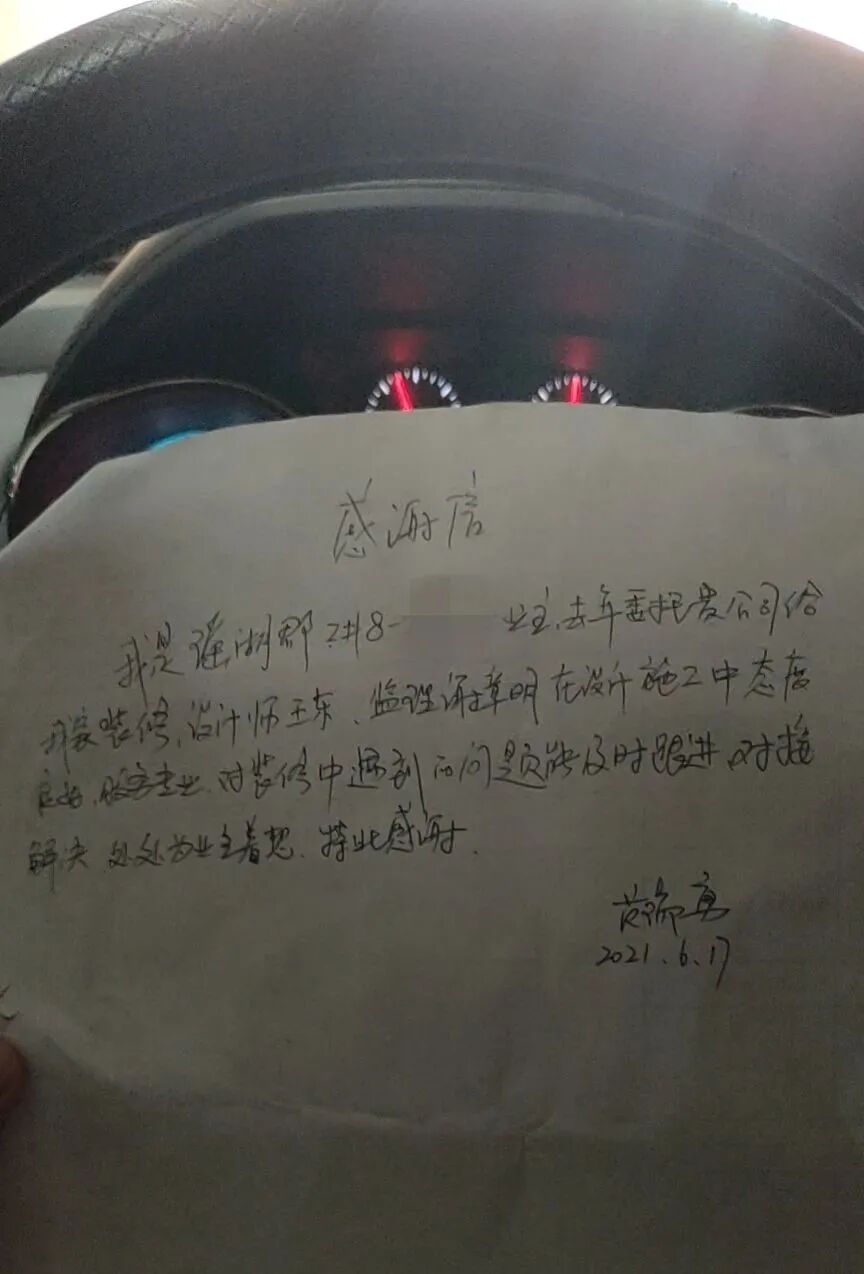 感谢信
我是瑶湖郡2#8- 业主,去年委托贵公司给
我家装修,设计师王东、监理谭章明在设计施工中态度
良好,服务专业,对装修中遇到的问题能及时跟进,对接
解决,处处为业主着想.特此感谢.
2021.6.17